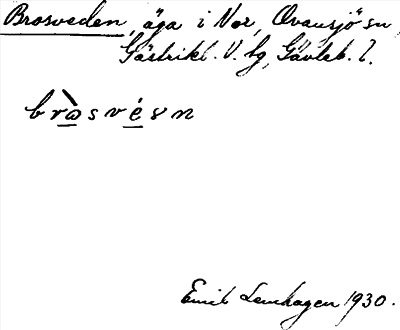 Brosveden, äga i Nor, Ovansjö sn,
Gästrikl. V. tg, Gävleb. l.
brɷ̀svésn
Emil Lenhagen 1930.